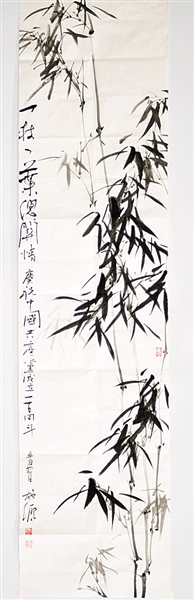 一枝〻葉總關情 慶祝中國共產黨成立一百周年
辛丑